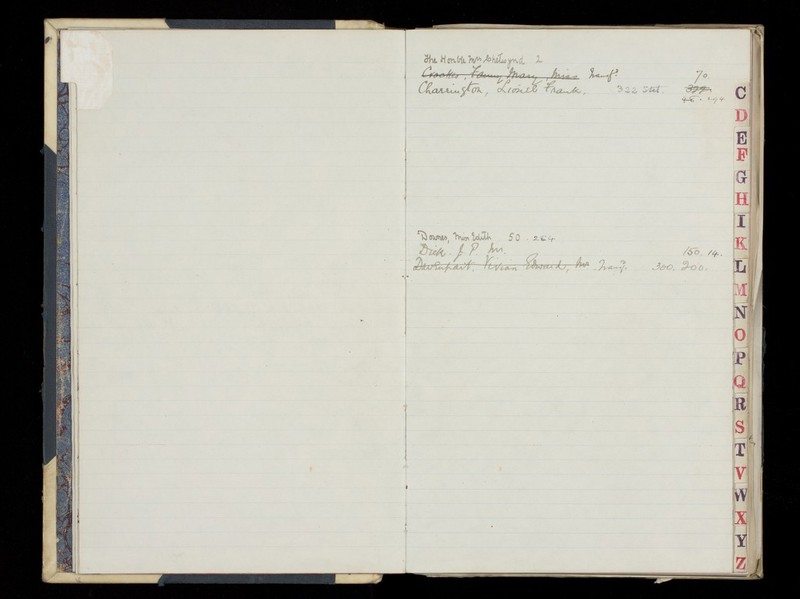 The Honble Mrs Chetwynd 2
Crookes, Fanny Mary, Miss Transfd. 70.
Charrington, Lionel Frank, 322 Stat. 377
45 .
Downes, Miss Edith 50 . 264
Dick J. P. Mr. 150. 14.
Davenport, Vivian Edward, Mr Transf. 300. 200.
C
D
E
F
G
H
I
K
L
M
N
O
P
Q
R
S
T
V
W
X
Y
Z